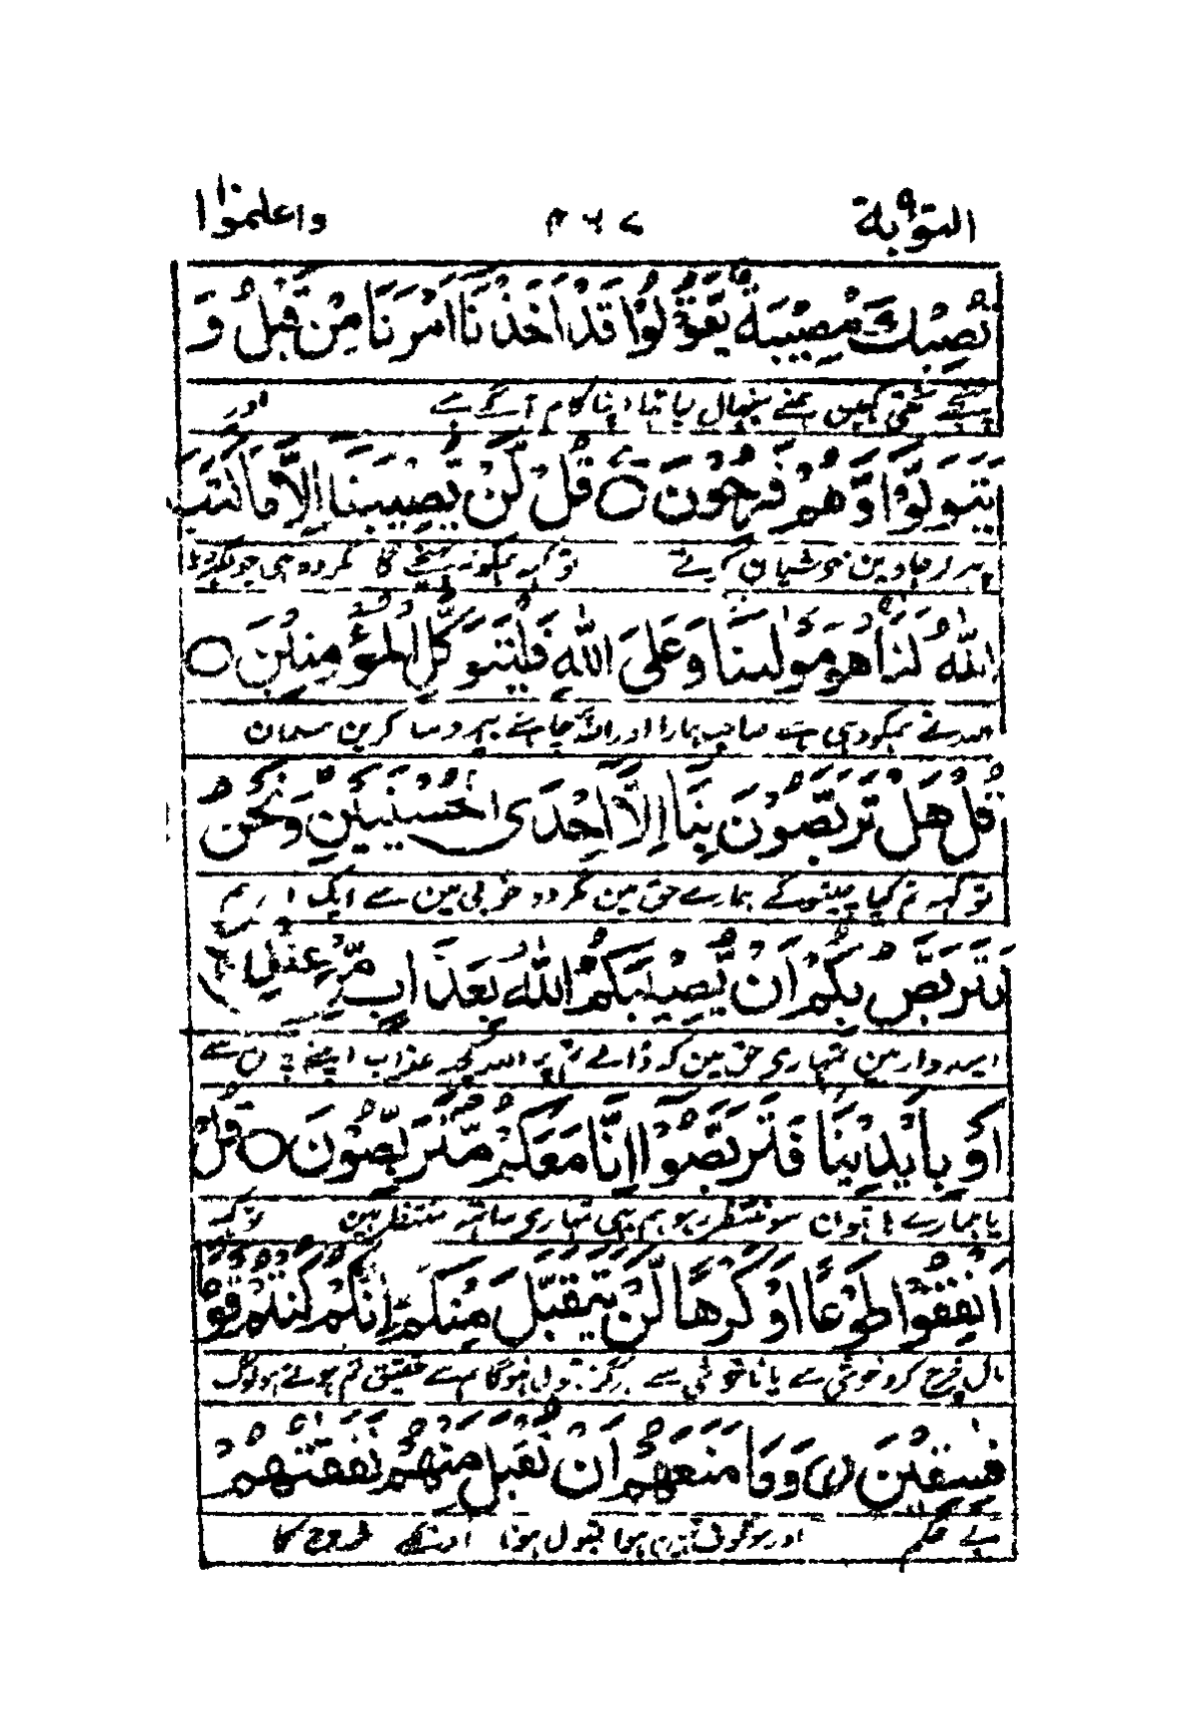 التوبة ٩ ٤٦٧ واعلموا
تُصِبْكَ مُصِيْبَةٌ يَّقُوْلُوْا قَدْ اَخَذْنَا اَمْرَنَا مِنْ قَبْلُ وَ
پہنچے سختی کہیں ہمنے سنبھال لیا تھا اپنا کام آگے ہے اور
يَتَوَلَّوْا وَّهُمْ فَرِحُوْنَ ○ قُلْ لَّنْ يُّصِيْبَنَا اِلَّا مَا كَتَبَ
پہر کر جاوین خوشیان کرتے تو کہہ ہمکو نہ پہنچے گا مگر وہی جو لکھدیا
اللّٰهُ لَنَا هُوَ مَوْلٰىنَا وَعَلَى اللّٰهِ فَلْيَتَوَكَّلِ الْمُؤْمِنُوْنَ ○
اللہ نے ہمکو وہی ہے صاحب ہمارا اور اللہ چاہئے بہروسا کرین مسلمان
قُلْ هَلْ تَرَبَّصُوْنَ بِنَا اِلَّا اِحْدَى الْحُسْنَيَيْنِ وَنَحْنُ
تو کہہ تم کیا چیتوگے ہمارے حق مین مگر دو خوبی مین سے ایک اور ہم
نَتَرَبَّصُ بِكُمْ اَنْ يُّصِيْبَكُمُ اللّٰهُ بِعَذَابٍ مِّنْ عِنْدِهٖ
امیدوار مین تمہاری حق مین کہ ڈالے تم پر اللہ کچھ عذاب اپنے پاس سے
اَوْ بِاَيْدِيْنَا فَتَرَبَّصُوْا اِنَّا مَعَكُمْ مُّتَرَبِّصُوْنَ ○ قُلْ
یا ہمارے ہاتہون سو منتظر رہو ہم بہی تمہاری ساتہہ منتظر ہین تو کہہ
اَنْفِقُوْا طَوْعًا اَوْ كَرْهًا لَّنْ يُّتَقَبَّلَ مِنْكُمْ اِنَّكُمْ كُنْتُمْ قَوْمًا
مال خرچ کرو خوشی سے یا ناخوشی سے ہرگز قبول نہوگا تم سے تحقیق تم ہوئے ہو لوگ
فٰسِقِيْنَ ○ وَمَا مَنَعَهُمْ اَنْ تُقْبَلَ مِنْهُمْ نَفَقٰتُهُمْ
بے حکم اور موقوف نہین ہوا قبول ہونا اونکے خرچ کا